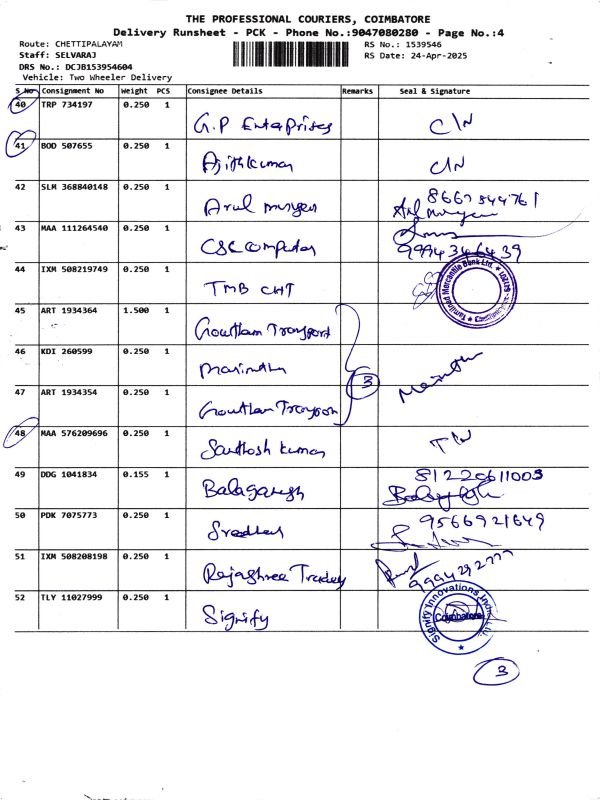 THE PROFESSIONAL COURIERS, COIMBATORE
Delivery Runsheet - PCK - Phone No.:9047080280 - Page No.:4
Route: CHETTIPALAYAM
RS No.: 1539546
Staff: SELVARAJ
RS Date: 24-Apr-2025
DRS No.: DCJB153954604
Vehicle: Two Wheeler Delivery
S.No Consignment No Weight PCS Consignee Details Remarks Seal & Signature
40 TRP 734197 0.250 1
G.P Enterprises C/N
41 BOD 507655 0.250 1
Ajithkumar C/N
42 SLM 368840148 0.250 1
Arul murugan
43 MAA 111264540 0.250 1
CSC computer 9994346439
44 IXM 508219749 0.250 1
TMB CHT
Tamilnad Mercantile Bank Ltd.
45 ART 1934364 1.500 1
Goutham Transport
46 KDI 260599 0.250 1
3
47 ART 1934354 0.250 1
Goutham Transport
48 MAA 576209696 0.250 1
Santhosh kumar
49 DDG 1041834 0.155 1
Balaganesh 81220611003
50 PDK 7075773 0.250 1
Sreedhar 9566921649
51 IXM 508208198 0.250 1
Rajashree Traders
52 TLY 11027999 0.250 1
Signify
Signify Innovations India Ltd.
Coimbatore
3